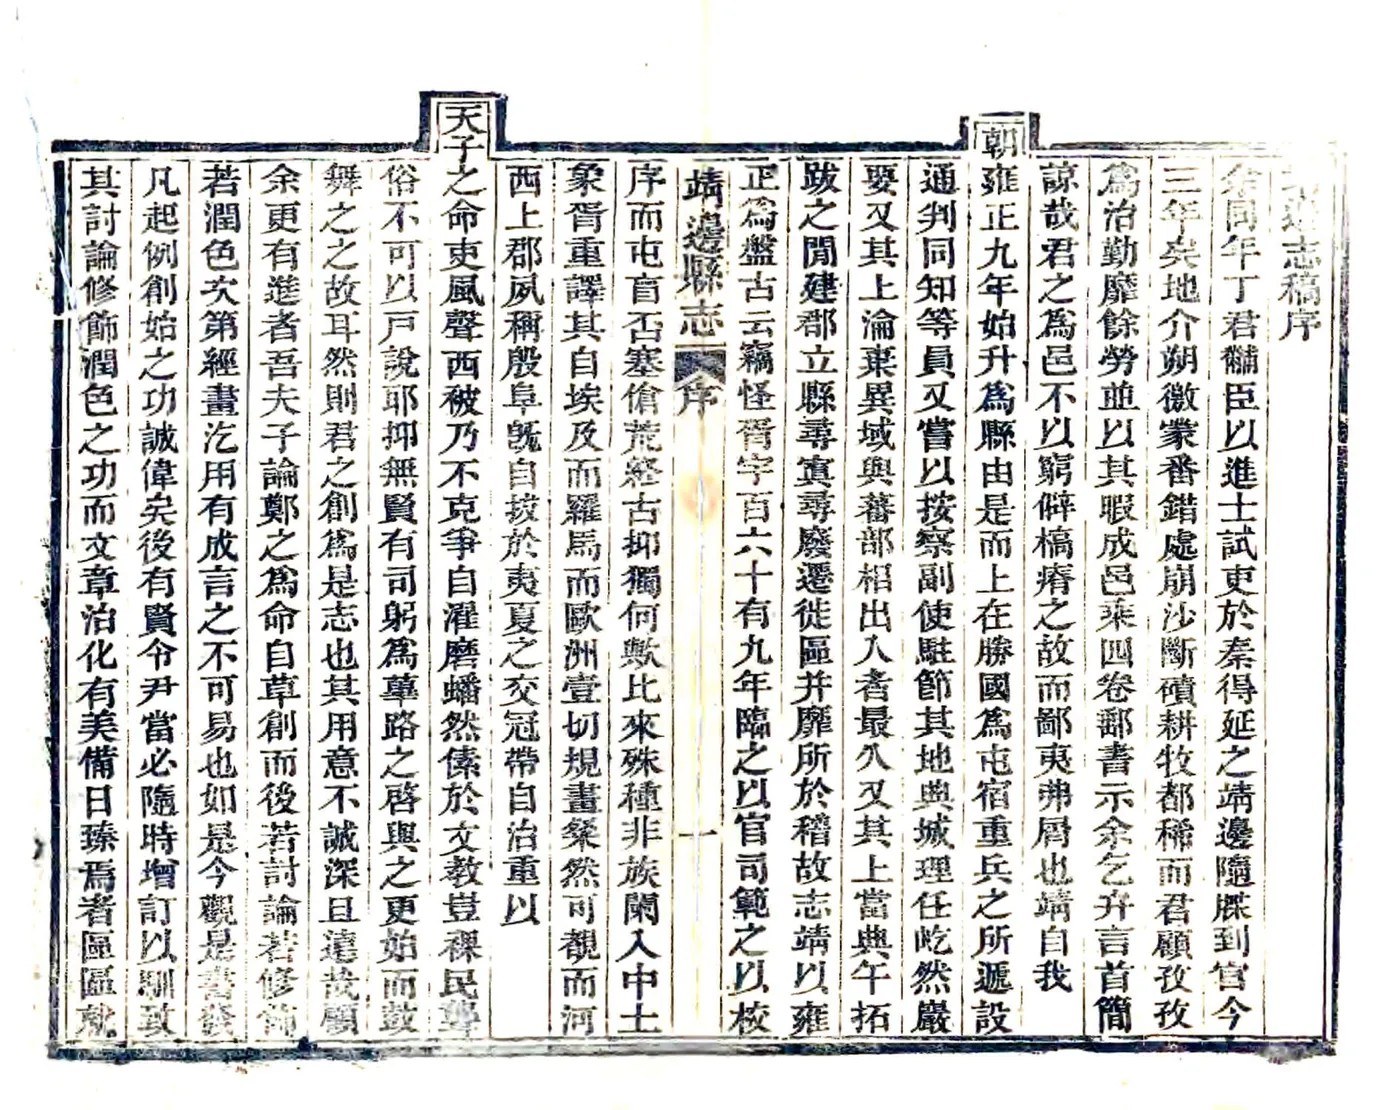 靖邊志稿序
余同年丁君黼臣以進士試吏於秦得延之靖邊隨牒到官今
三年矣地介朔徼蒙番錯處崩沙斷磧耕牧都稀而君顧孜孜
爲治勤靡餘勞並以其暇成邑乘四卷郵書示余乞弁言首簡
諒哉君之爲邑不以窮僻槁瘠之故而鄙夷弗屑也靖自我
朝雍正九年始升爲縣由是而上在勝國爲屯宿重兵之所遞設
通判同知等員又嘗以按察副使駐節其地與城理任屹然嚴
要又其上淪棄異域與蕃部相出入者最久又其上當典午拓
跋之閒建郡立縣尋寘尋廢遷徙區并靡所於稽故志靖以雍
正爲盤古云竊怪胥宇百六十有九年臨之以官司範之以校
靖邊縣志 序 一
序而屯盲否塞傖荒終古抑獨何歟比來殊種非族闌入中土
象胥重譯其自埃及而羅馬而歐洲壹切規畫粲然可覩而河
西上郡夙稱殷阜旣自拔於夷夏之交冠帶自治重以
天子之命吏風聲西被乃不克爭自濯磨蟠然傃於文教豈裸民聾
俗不可以戸說耶抑無賢有司躬爲蓽路之啓與之更始而鼓
舞之之故耳然則君之創爲是志也其用意不誠深且遠哉顧
余更有進者吾夫子論鄭之爲命自草創而後若討論若修飾
若潤色次第經畫汔用有成言之不可易也如是今觀是書發
凡起例創始之功誠偉矣後有賢令尹當必隨時增訂以馴致
其討論修飾潤色之功而文章治化有美備日臻焉者區區就